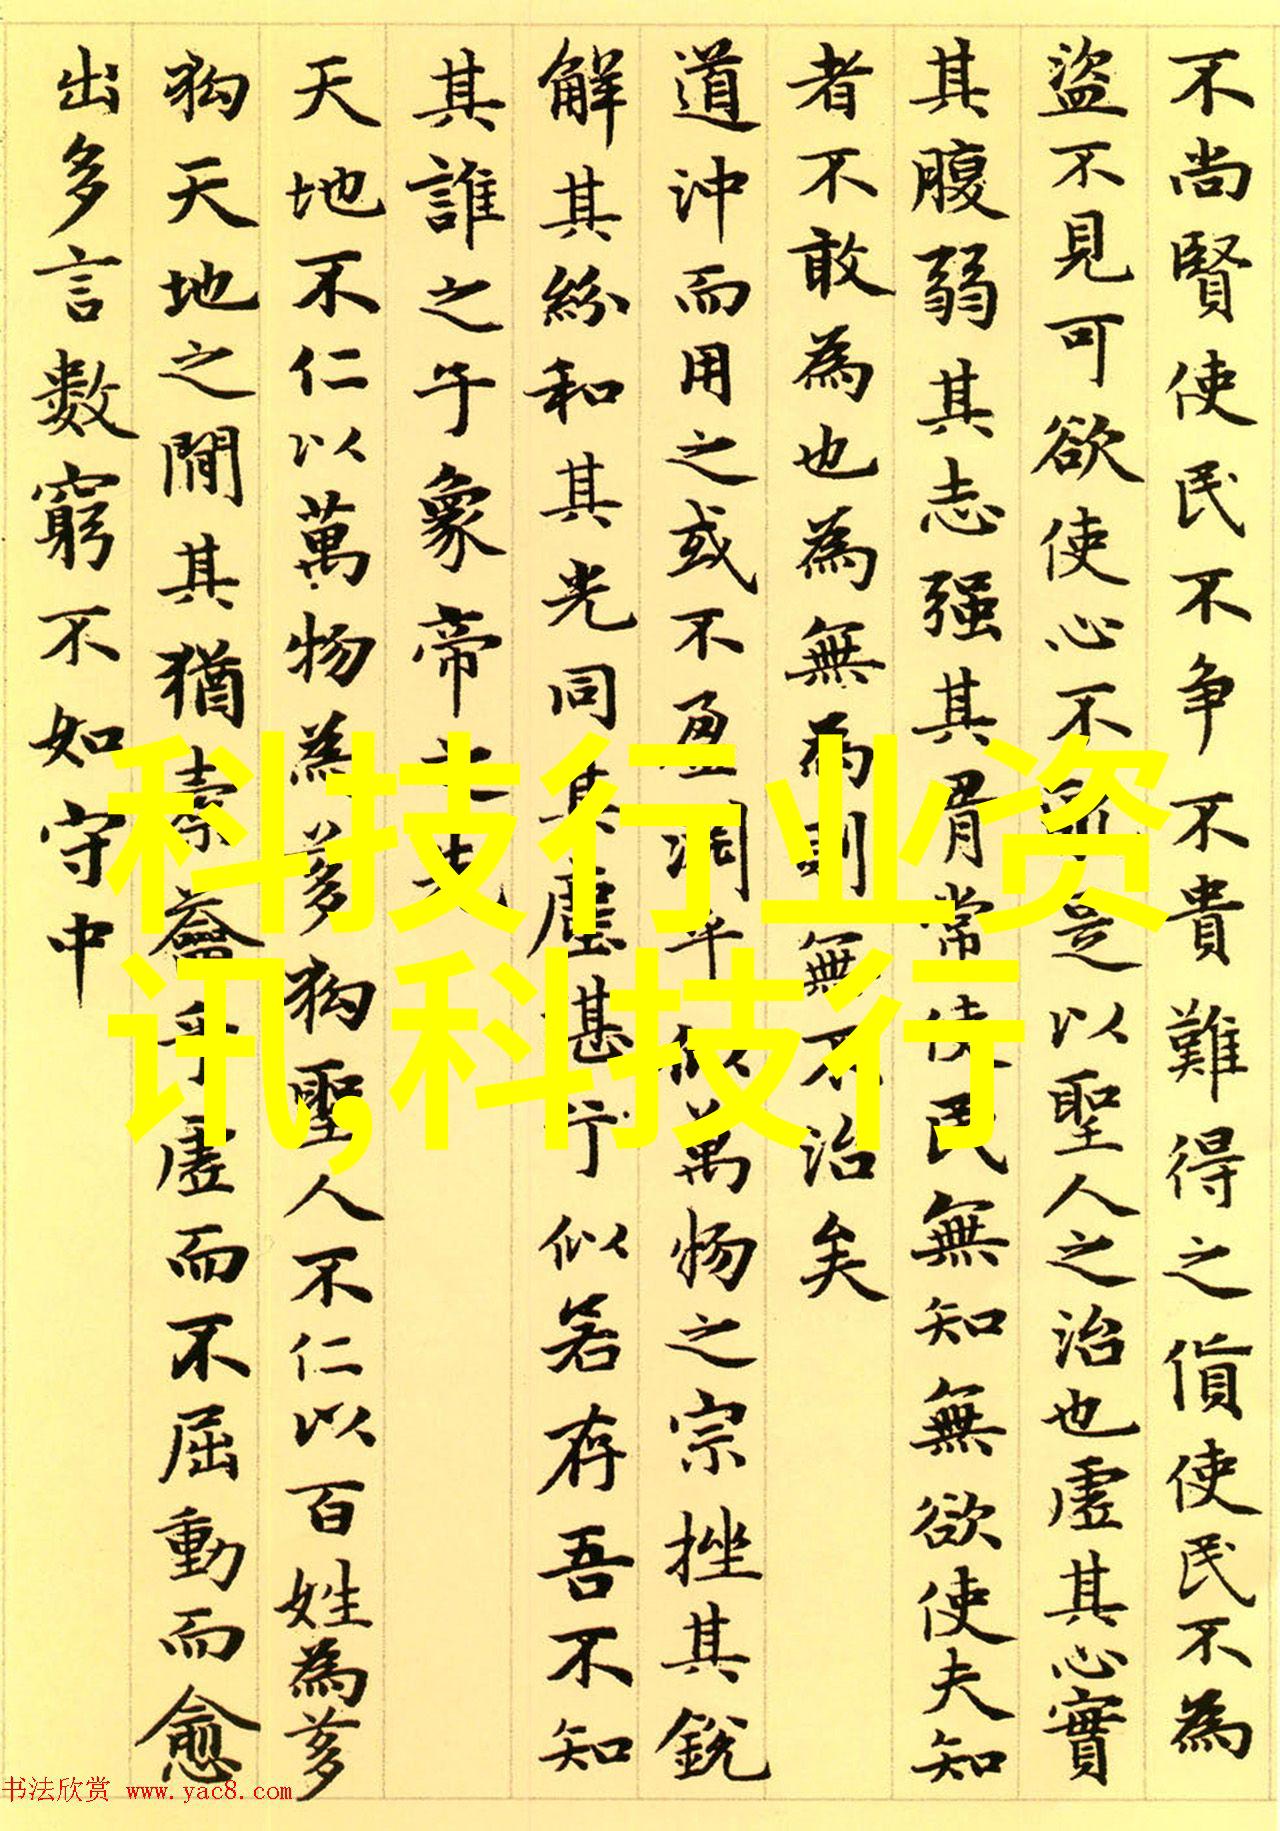 不尚賢使民不争不貴難得之貨使民不為
盜不見可欲使心不亂是以聖人之治也虛其心實
其腹弱其志强其骨常使民無知無欲使夫知
者不敢為也為無為則無不治矣
道沖而用之或不盈淵乎似萬物之宗挫其銳
解其紛和其光同其塵甚兮似若存吾不知
其誰之子象帝之先
天地不仁以萬物為芻狗聖人不仁以百姓為芻
狗天地之間其猶橐龠乎虛而不屈動而愈
出多言數窮不如守中
科技行业资
讯,科技行
书法欣赏 www.yac8.com